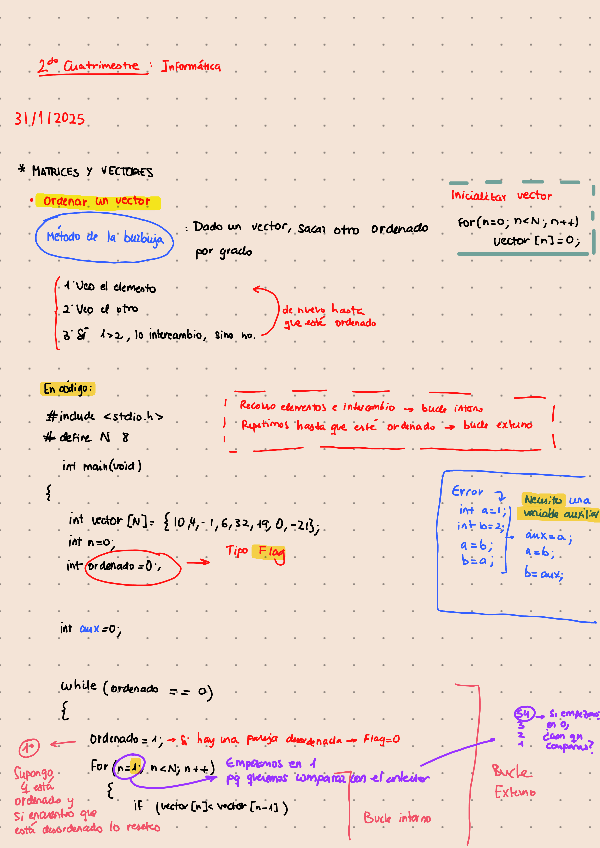 2do Cuatrimestre : Informática
31/1/2025
* MATRICES Y VECTORES
• Ordenar un vector
Método de la burbuja : Dado un vector, sacar otro ordenado
por grado
Inicializar vector
for(n=0; n<N; n++)
vector [n]=0;
1º Veo el elemento
2º Veo el otro
3º Si 1>2, lo intercambio, sino no.
de nuevo hasta
que esté ordenado
En código:
#include <stdio.h>
#define N 8
int main(void)
{
Recorro elementos e intercambio → bucle interno
Repetimos hasta que esté ordenado → bucle externo
int vector [N]= {10,4,-1,6,32,19,0,-21};
int n=0;
int ordenado=0; → Tipo Flag
Error
int a=1;
int b=2;
a=b;
b=a;
Necesito una
variable auxiliar
aux=a;
a=b;
b=aux;
int aux=0;
while (ordenado == 0)
{
ordenado=1; → Si hay una pareja desordenada → Flag=0
1º
Supongo
q está
ordenado y
si encuentro que
está desordenado lo reseteo
For (n=1; n<N; n++)
Empezamos en 1
pq queremos comparar con el anterior
54 → Si empezamos
3 en 0,
2 ¿con qn
1 comparas?
{
if (vector[n]<vector[n-1])
Bucle interno
Bucle
Externo